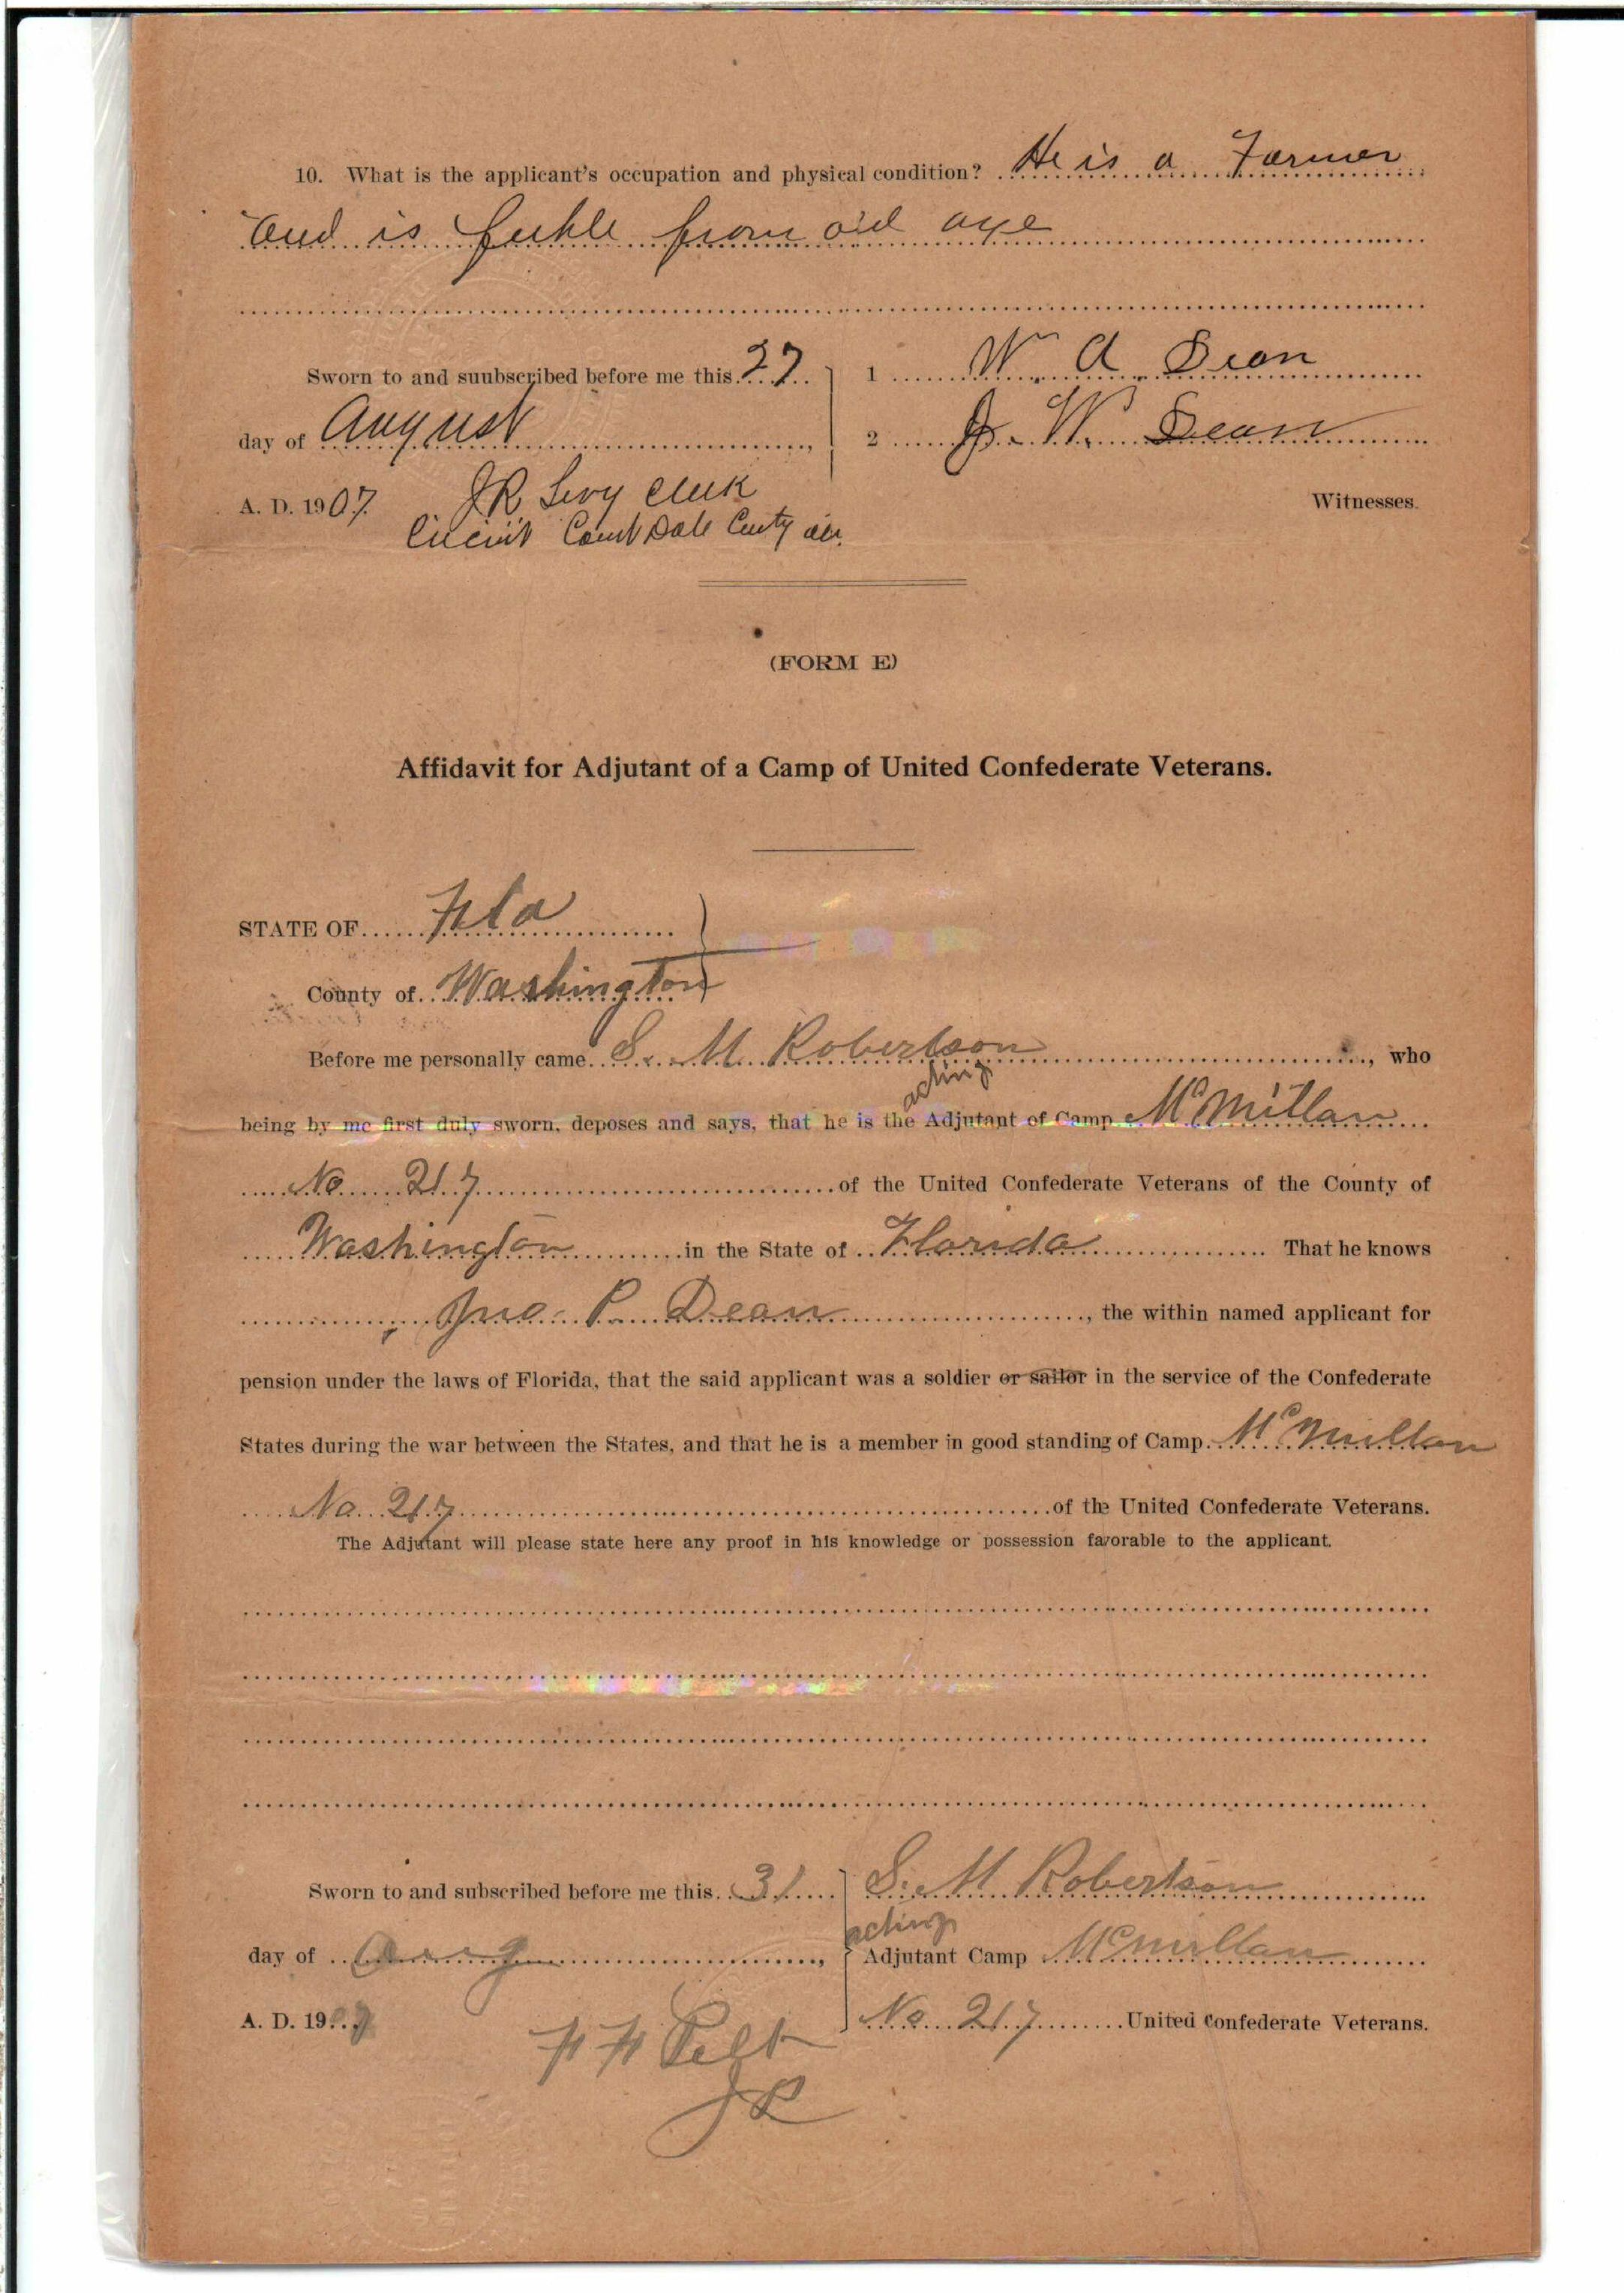 10. What is the applicant's occupation and physical condition? He is a Farmer
and is feeble from old age
Sworn to and suubscribed before me this 27
1 W. A. Dean
day of August,
2 J. W. Dean
A. D. 1907. J R Levy Clerk
Witnesses.
Circuit Court Dale Cnty ala.
(FORM E)
Affidavit for Adjutant of a Camp of United Confederate Veterans.
STATE OF Fla
County of Washington
Before me personally came S. M. Robertson, who
acting
being by me first duly sworn, deposes and says, that he is the Adjutant of Camp McMillan
No 217 of the United Confederate Veterans of the County of
Washington in the State of Florida That he knows
Jno. P. Dean, the within named applicant for
pension under the laws of Florida, that the said applicant was a soldier or sailor in the service of the Confederate
States during the war between the States, and that he is a member in good standing of Camp McMillan
No. 217 of the United Confederate Veterans.
The Adjutant will please state here any proof in his knowledge or possession favorable to the applicant.
Sworn to and subscribed before me this 31
S. M. Robertson
acting
day of Aug,
Adjutant Camp McMillan
A. D. 1907
No. 217 United Confederate Veterans.
Pelt
JP